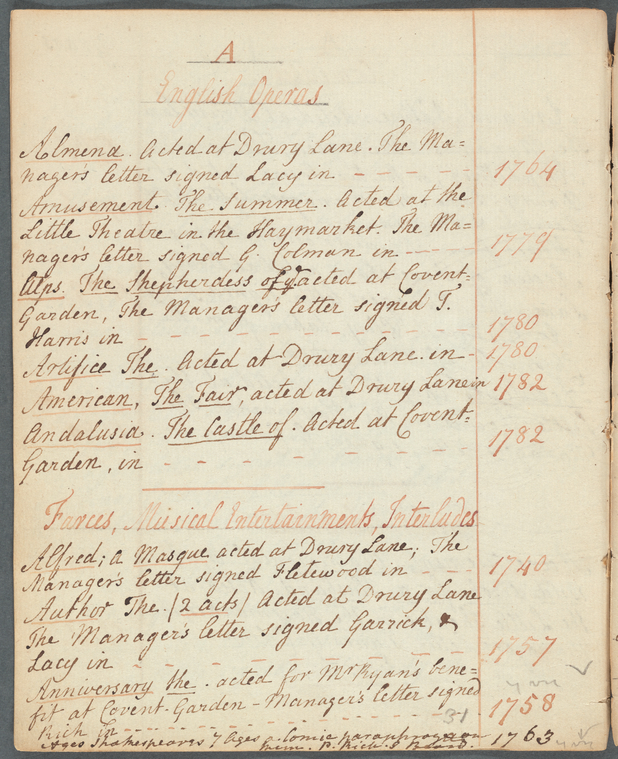 A
English Operas
Almena. Acted at Drury Lane. The Ma=
nager's letter signed Lacy in - - - - - 1764
Amusement. The Summer. Acted at the
Little Theatre in the Haymarket. The Ma=
nager's letter signed G. Colman in - - - 1779
Alps. The Shepherdess of ye acted at Covent-
Garden, The Manager's letter signed T.
Harris in - - - - - - - - - 1780
Artifice The. Acted at Drury Lane. in - 1780
American, The Fair, acted at Drury Lane in 1782
Andalusia. The Castle of. Acted at Covent-
Garden, in - - - - - - - - 1782
Farces, Musical Entertainments, Interludes
Alfred; a Masque acted at Drury Lane; The
Manager's letter signed Fletewood in - - - 1740
Author The. (2 acts) Acted at Drury Lane
The Manager's letter signed Garrick, &
Lacy in - - - - - - - - - 1757
Anniversary the. acted for Mr Ryan's bene=
fit at Covent-Garden - Manager's letter signed
Rich in - - - - - - - - 31 1758
Ages Shakespeares 7 Ages a Comic paraphrase on
P. Rich. 1763